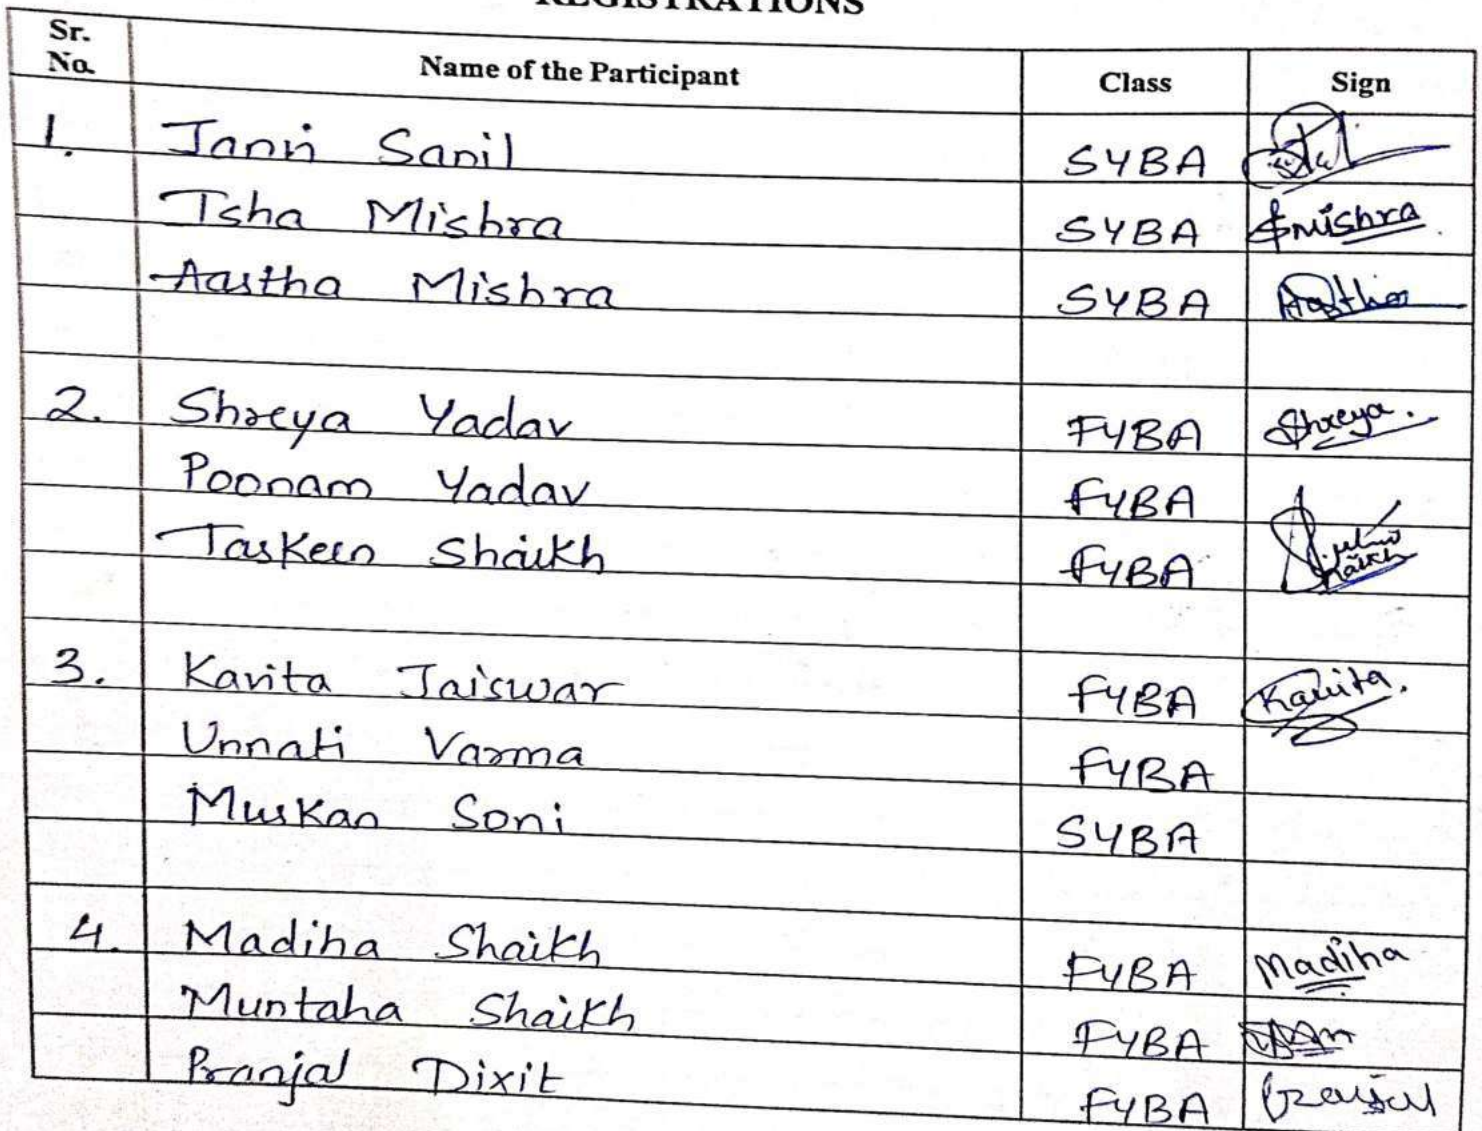 REGISTRATIONS
Sr. No. Name of the Participant Class Sign
1. Janvi Sanil SYBA
Isha Mishra SYBA Imishra.
Aastha Mishra SYBA Aastha
2. Shreya Yadav FYBA Shreya.
Poonam Yadav FYBA
Taskeen Shaikh FYBA Shaikh
3. Kavita Jaiswar FYBA Kavita.
Unnati Varma FYBA
Muskan Soni SYBA
4. Madiha Shaikh FYBA Madiha
Muntaha Shaikh FYBA
Pranjal Dixit FYBA Pranjal